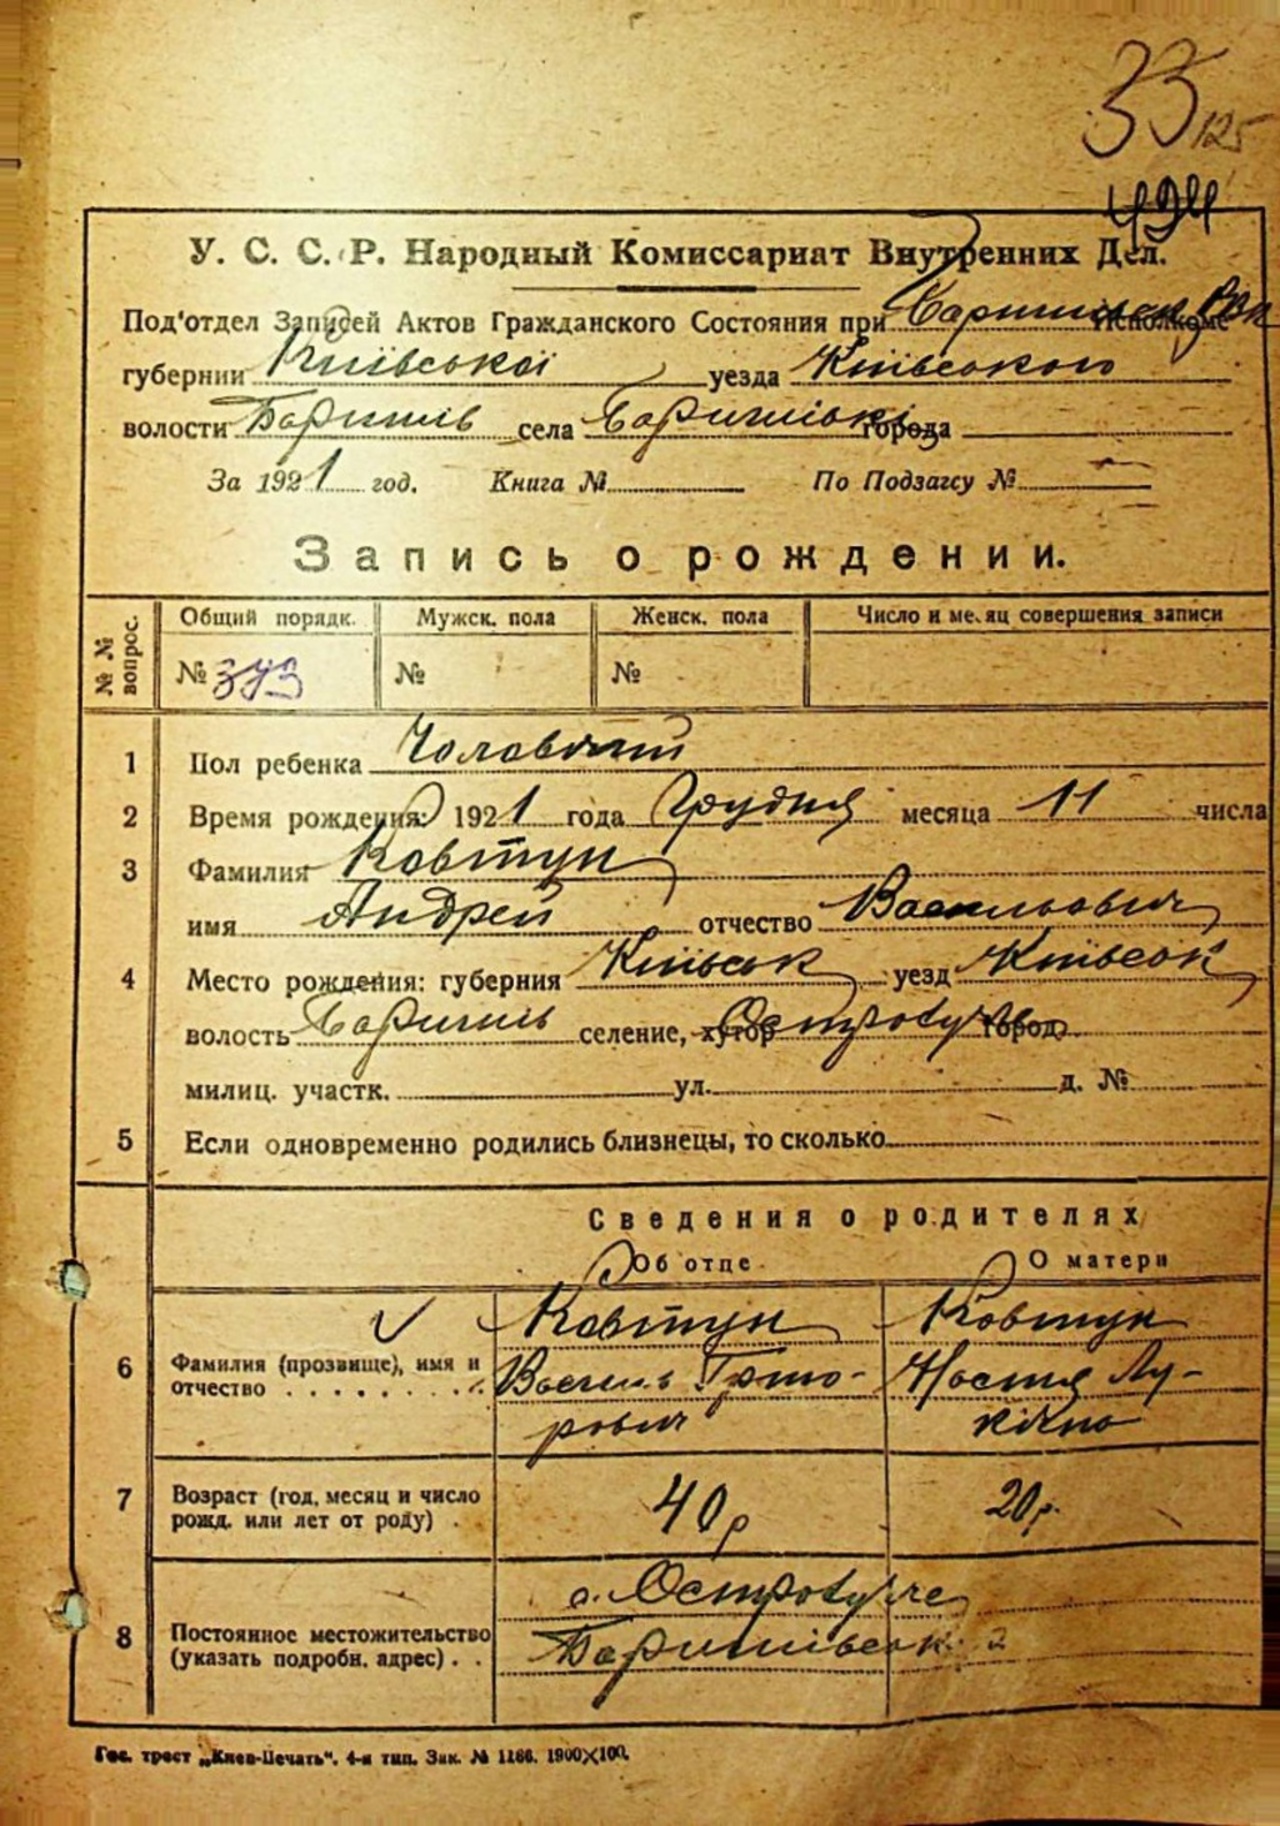 33 125
494
У. С. С. Р. Народный Комиссариат Внутренних Дел.
Под'отдел Записей Актов Гражданского Состояния при Исполкоме
губернии Київської уезда Київського
волости Баришів села Баришівкі города
За 1921 год. Книга № По Подзагсу №
Запись о рождении.
№№ вопрос. Общий порядк. Мужск. пола Женск. пола Число и месяц совершения записи
№ 373 № №
1 Пол ребенка Чоловічий
2 Время рождения: 1921 года Грудня месяца 11 числа
3 Фамилия Ковтун
имя Андрей отчество Васильович
4 Место рождения: губерния Київськ уезд Київськ
волость Баришів селение, хутор город
милиц. участк. ул. д. №
5 Если одновременно родились близнецы, то сколько
Сведения о родителях
Об отце О матери
Ковтун Ковтун
6 Фамилия (прозвище), имя и отчество Василь Григо- Настя Лу-
рович ківна
7 Возраст (год, месяц и число рожд. или лет от роду) 40 р 20 р.
с. Остролуччє
8 Постоянное местожительство (указать подробн. адрес) Баришівськ
Гос. трест „Киев-Печать“. 4-я тип. Зак. № 1166. 1900×100.